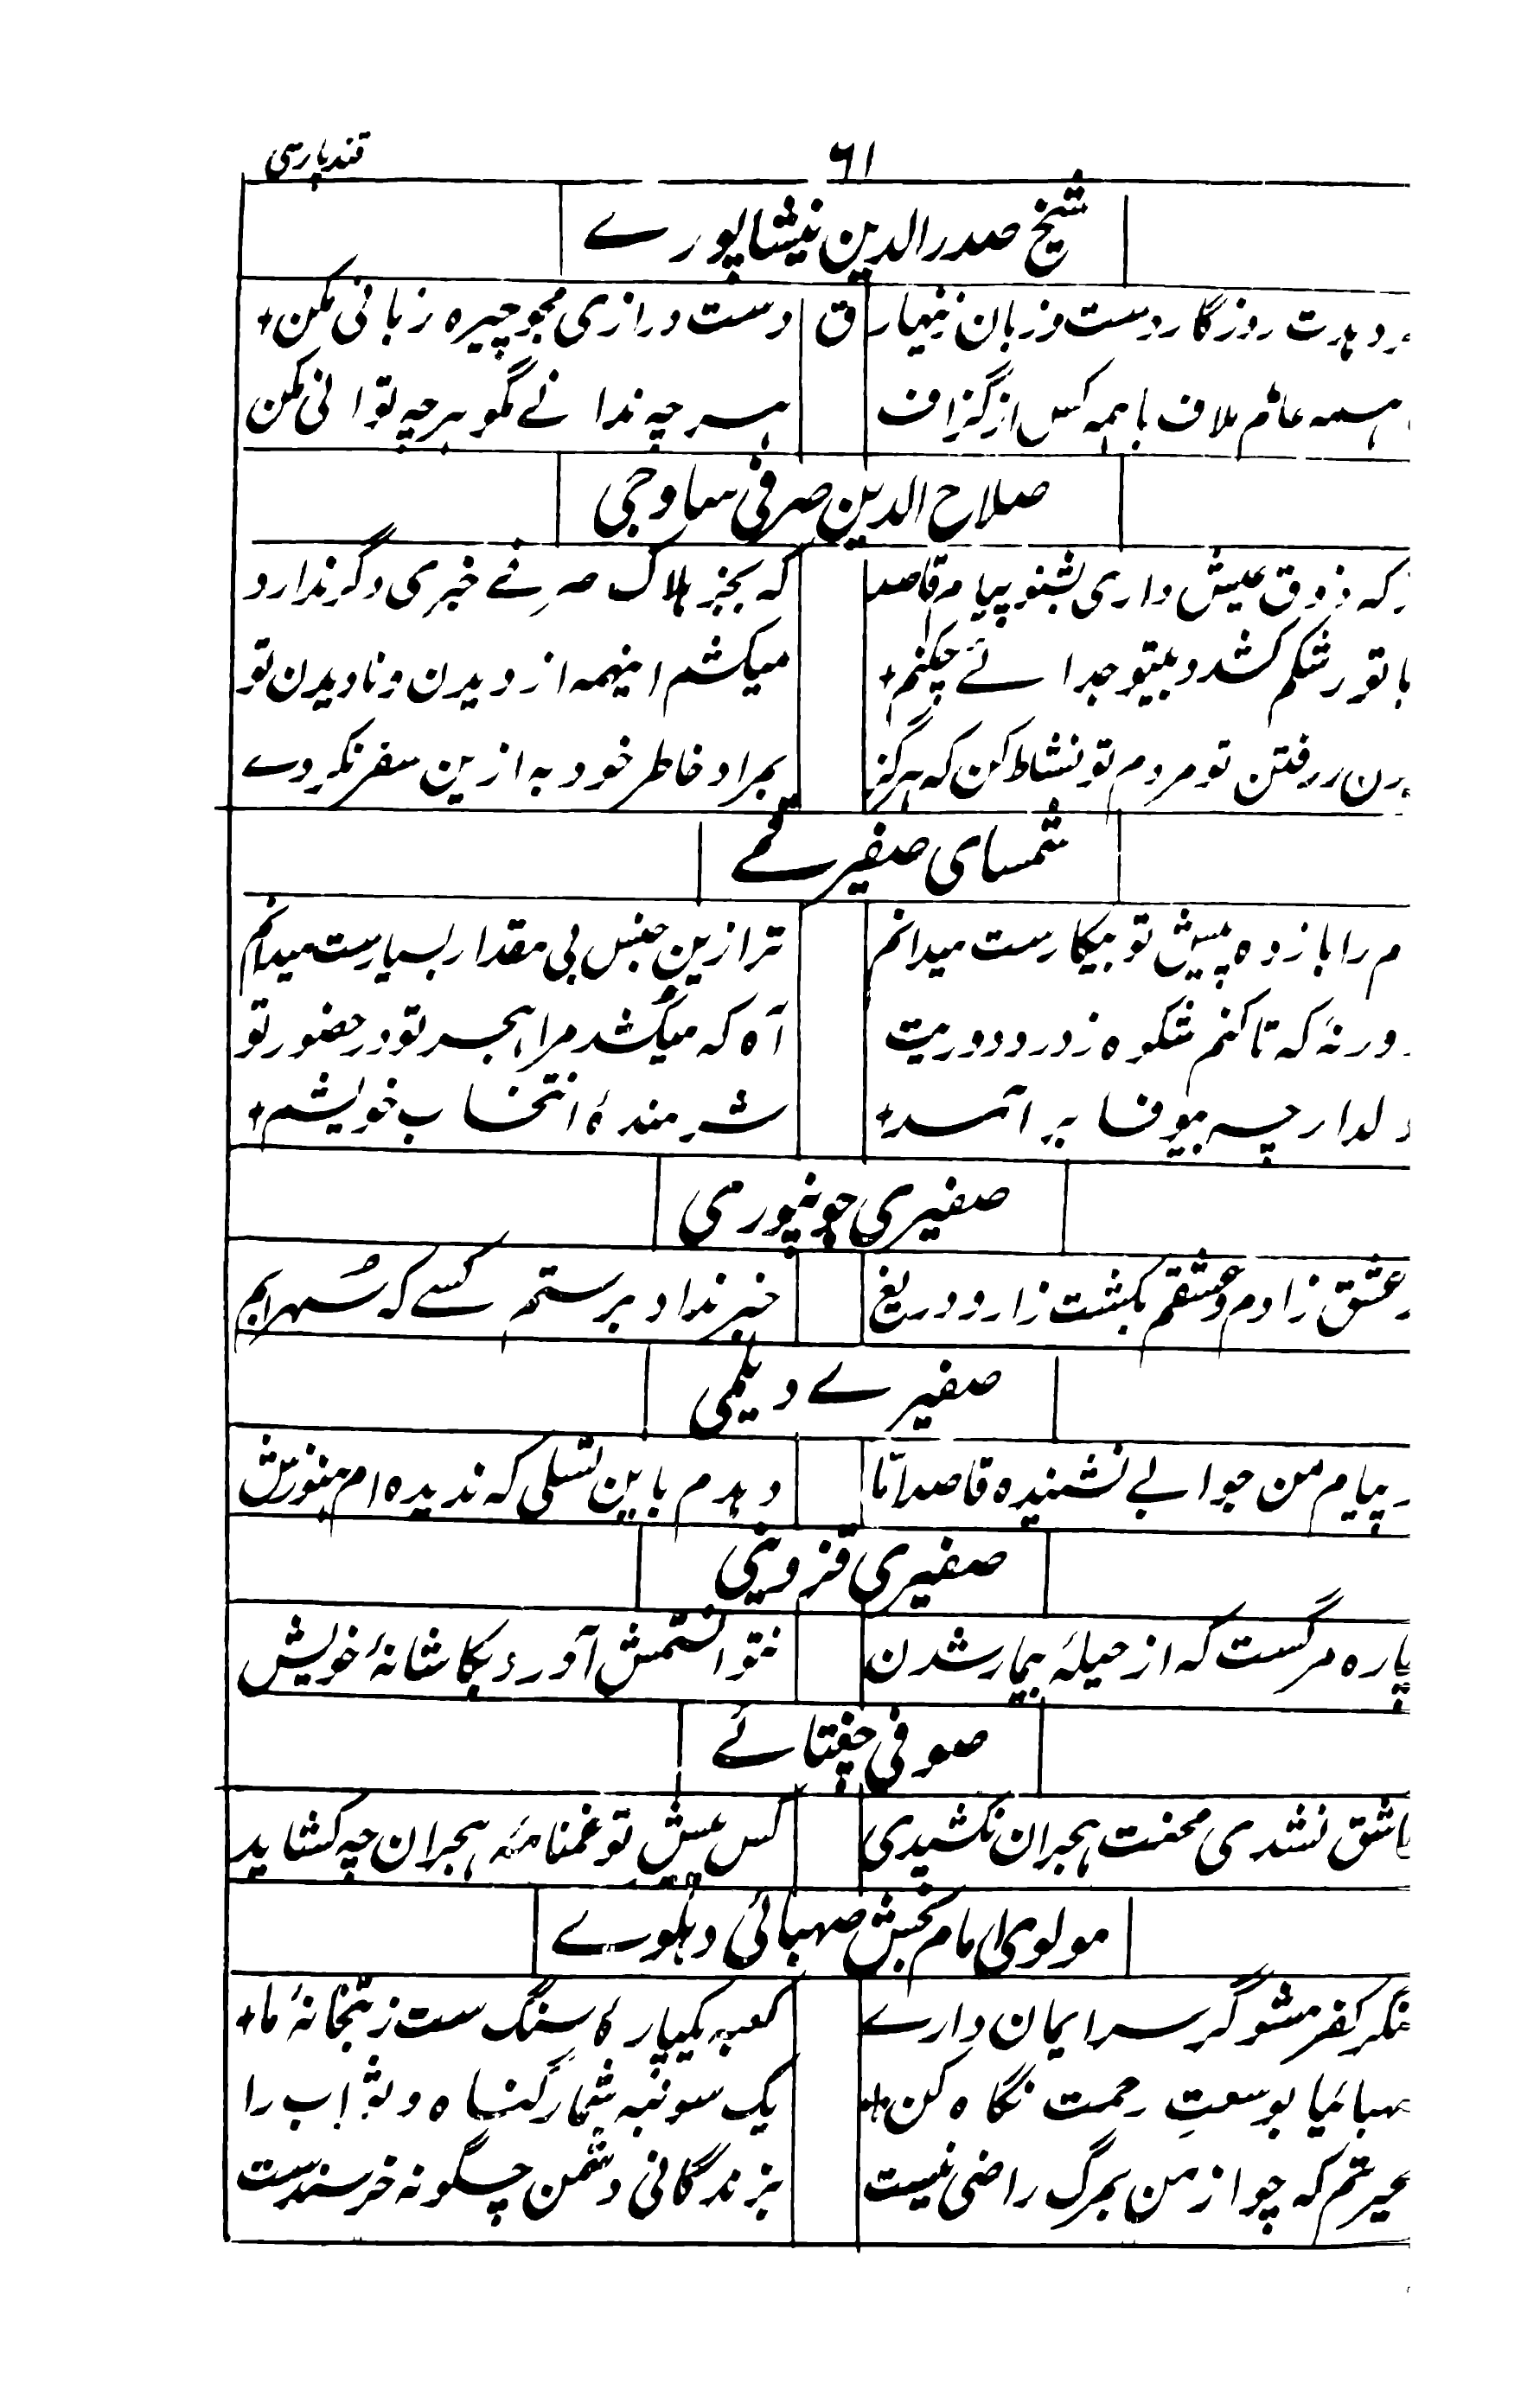 قندپارسی
۶۱
شیخ صدرالدین نیشاپورے
دہدت روزگار دست و زبان زینہار ق دست درازی مجو چیرہ زبانی مکن+
ہمہ عالم ملاف با ہمہ کس از گزاف ہر چہ ندانے مگو ہر چہ توانی مکن
صلاح الدین صرفی ساوجی
کہ ذوق عیش داری بشنو پیام قاصد کہ بجز ہلاک صرفے خبری دگر ندارد
با تو رشکم کشد و بیتو جدائے چکنم+ میکشم اینہمہ از دیدن و نادیدن تو
رفتن تو مردم تو نشاط کن کہ ہرگز بمراد خاطر خود بہ ازین سفر نکردے
شمسای صفیر قمے
م را باز دہ پیش تو بیکارست میدانم ترا ازین جنس بی مقدار بسیارست میدانم
دور نۂ کہ تا کنم شکوہ ز درد دوریت آہ کہ میکُشد مرا ہجر تو در حضور تو
دلدار چہ بیوفا بر آمد+ شرمندۂ انتخاب خویشم+
صفیری جونپوری
عشق زادم و عشقم بکشت زار و دریغ خبر نداد برستم کسے کہ سُہرابم
صفیرے دیلمی
پیام من جوابے نشنیدہ قاصد امّا دہدم باین تسلی کہ ندیدہ ام ہنوزش
صفیری قزوینی
چارہ مرگست کہ از حیلۂ بیمار شدن نتوانستمش آورد بکاشانۂ خویش
صوفی چغتائے
عاشق نشدی محنت ہجران نکشیدی کس پیش تو غمنامۂ ہجران چہ کشاید
مولوی امام بخش صہبائی دہلوے
منکر کفر مشو گر سر ایمان دارے کعبہ یکپارۂ سنگ ست ز بتخانۂ ما+
صہبائیا بوسعتِ رحمت نگاہ کن+ یک سو بنہ شمار گناہ و ثواب را
بحیرتم کہ چو از من بمرگ راضی نیست بزندگانی دشمن چگونہ خرسندست